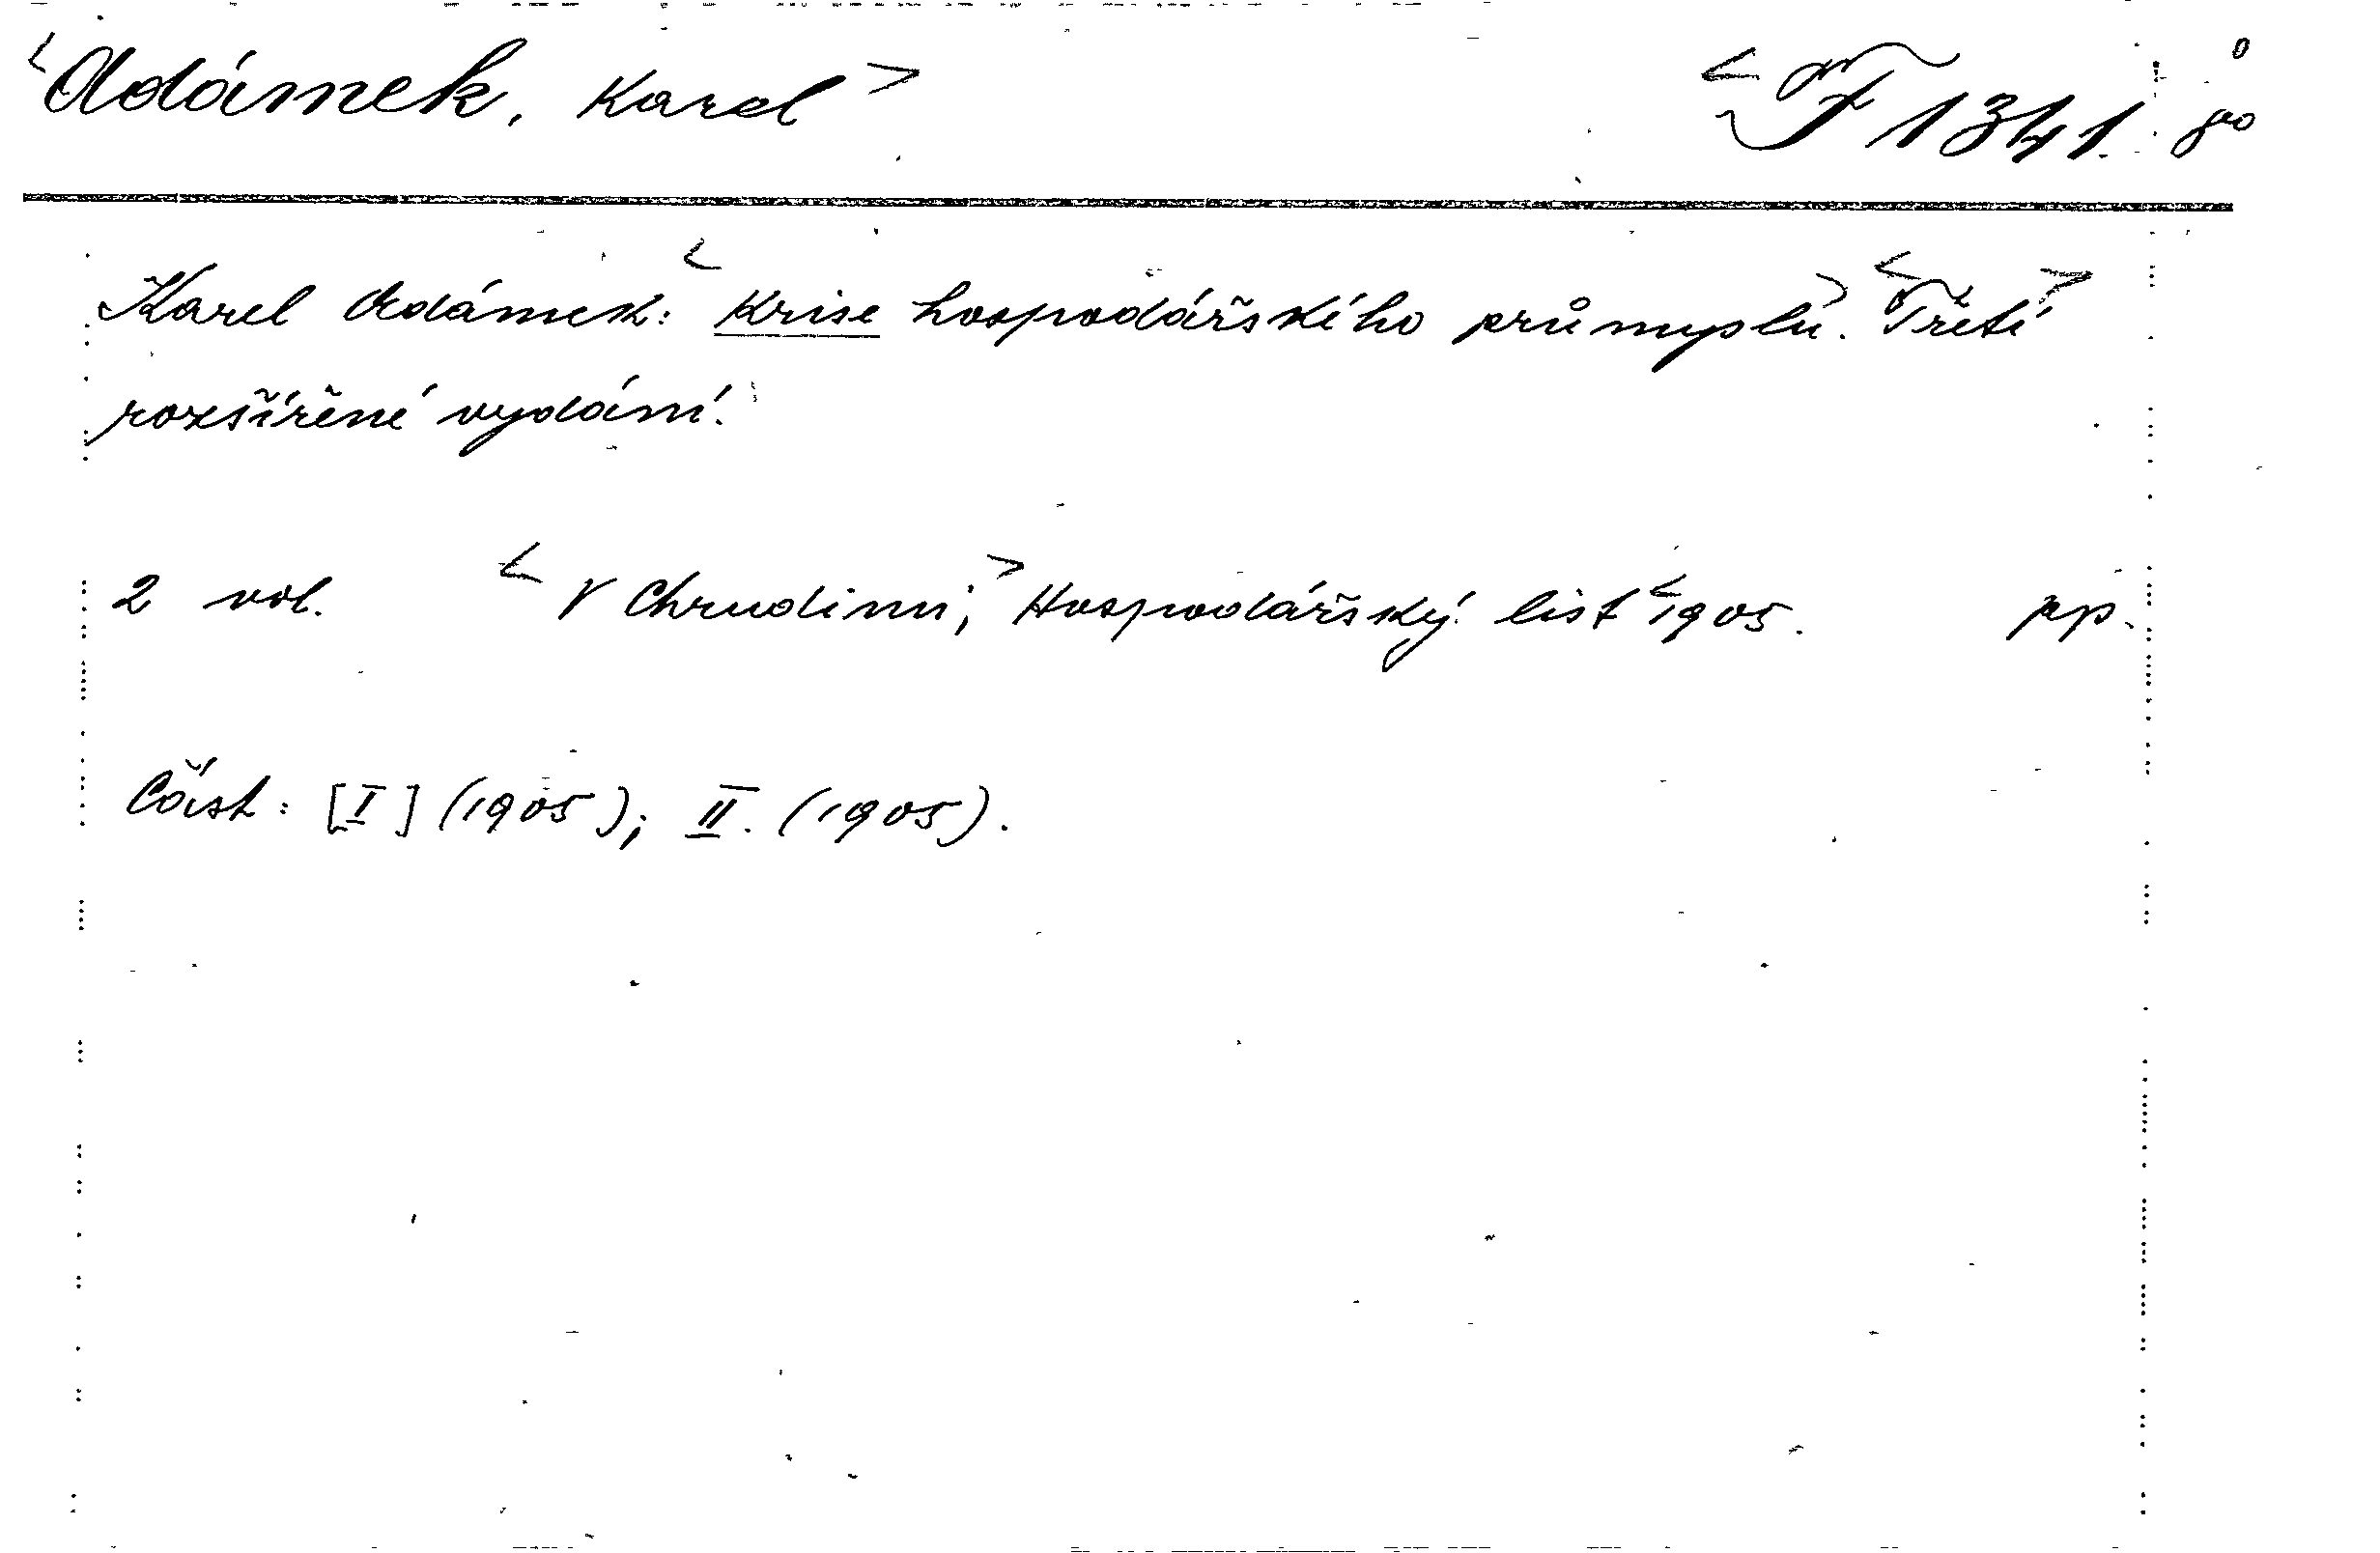 <Adámek, Karel> <F 1341.
Karel Adámek: <Krise hospodářského průmyslu.> <Třetí>
rozšířené vydání.
2 vol. <V Chrudimi,> Hospodářský list <1905. pp.
Část: [I] (1905); II. (1905).